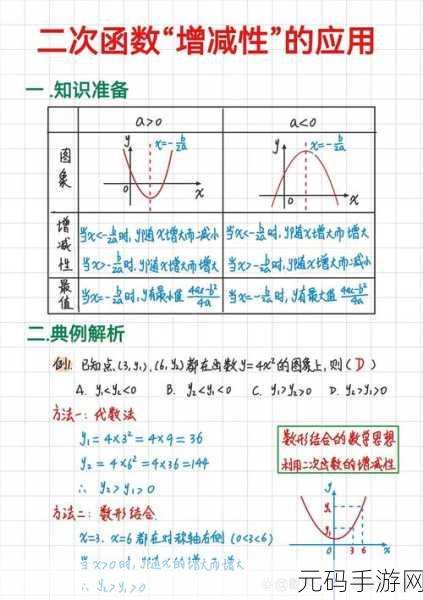 二次函数“增减性”的应用
一.知识准备
a>0 a<0
图象
y x=-b/2a 0 x
y x=-b/2a 0 x
增减性
当x<-b/2a时,y随x增大而减小 当x<-b/2a时,y随x增大而增大
当x>-b/2a时,y随x增大而增大 当x>-b/2a时,y随x增大而减小
最值
当x=-b/2a时,y有最小值 4ac-b²/4a 当x=-b/2a时,y有最大值 4ac-b²/4a
二.典例解析
例1: 已知点(3,y₁)、(6,y₂)都在函数y=4x²的图象上,则(D)
A. y₁<y₂<0 B. y₂<y₁<0 C. y₁>y₂>0 D. y₂>y₁>0
方法一:代数法
y₁=4×3²=4×9=36
y₂=4×6²=4×36=144
∴ y₂>y₁>0
数形结合的数学思想
利用二次函数的增减性
方法二:数形结合
x=3、x=6都在对称轴右侧(0<3<6)
当x>0时,y随x的增大而增大
∴ y₂>y₁>0
y y₂ y₁ 0 3 6 x
元码手游网